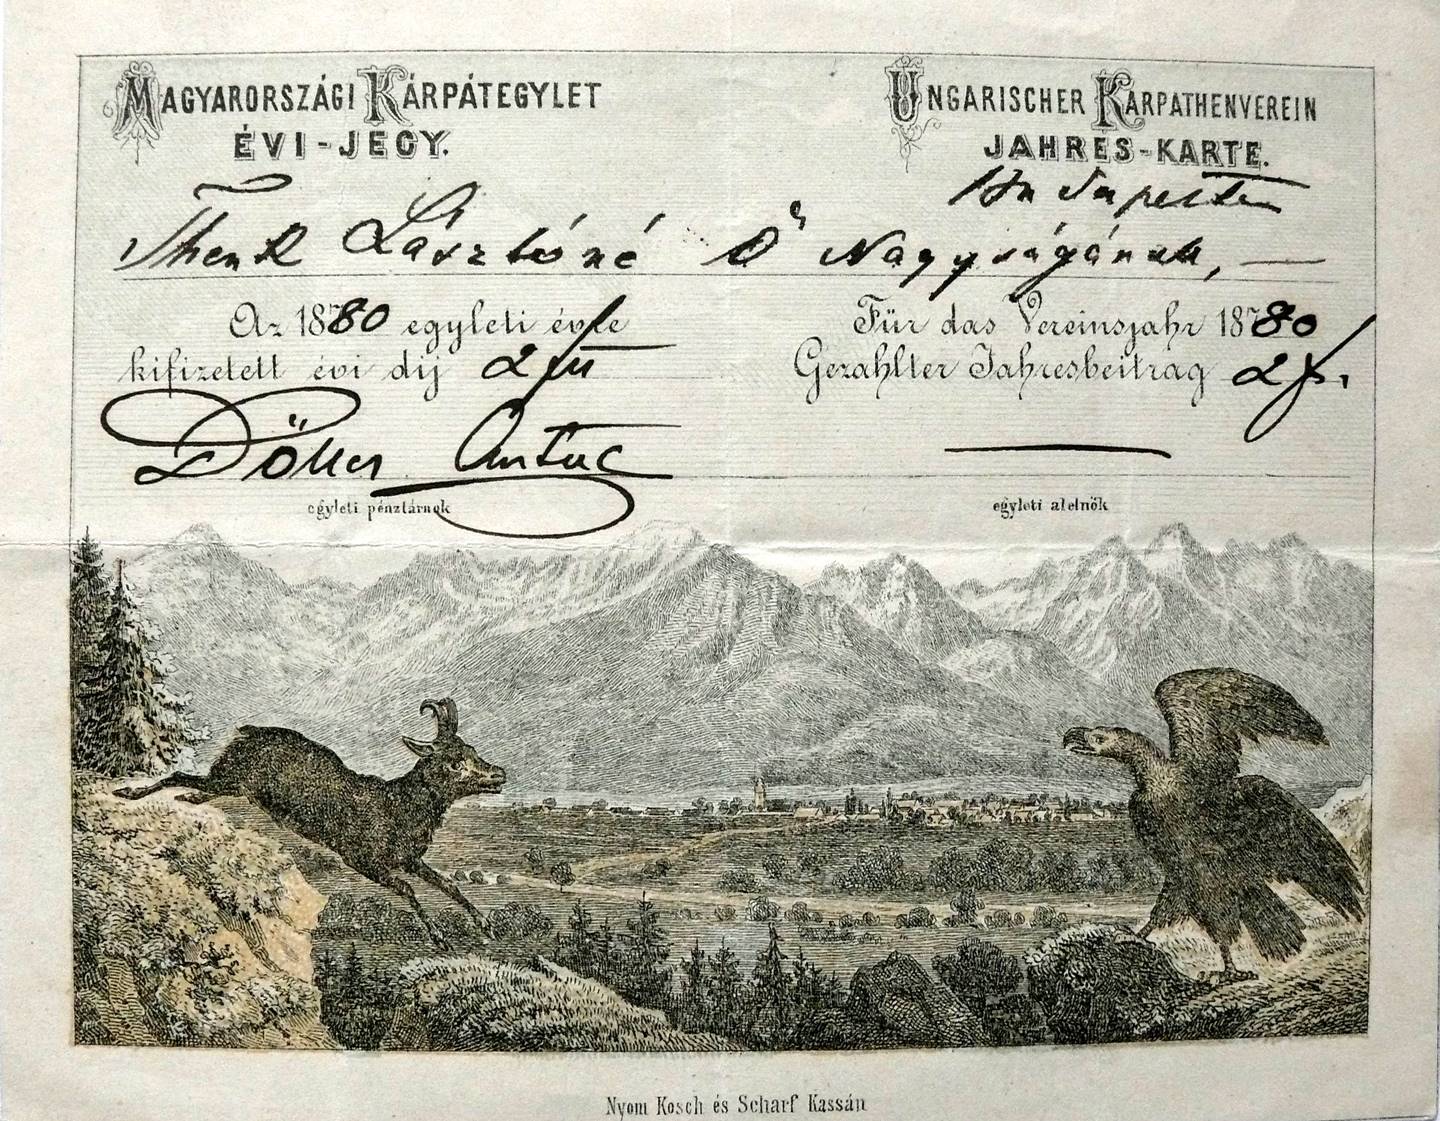 MAGYARORSZÁGI KÁRPÁTEGYLET
ÉVI-JEGY.
UNGARISCHER KARPATHENVEREIN
JAHRES-KARTE.
Budapesten
Thenk Lászlóné Ő Nagyságának, —
Az 1880 egyleti évre
kifizetett évi díj 2 frt
Für das Vereinsjahr 1880
Gezahlter Jahresbeitrag 2 f.
Döller Antal
egyleti pénztárnok
egyleti alelnök
Nyom Kosch és Scharf Kassán